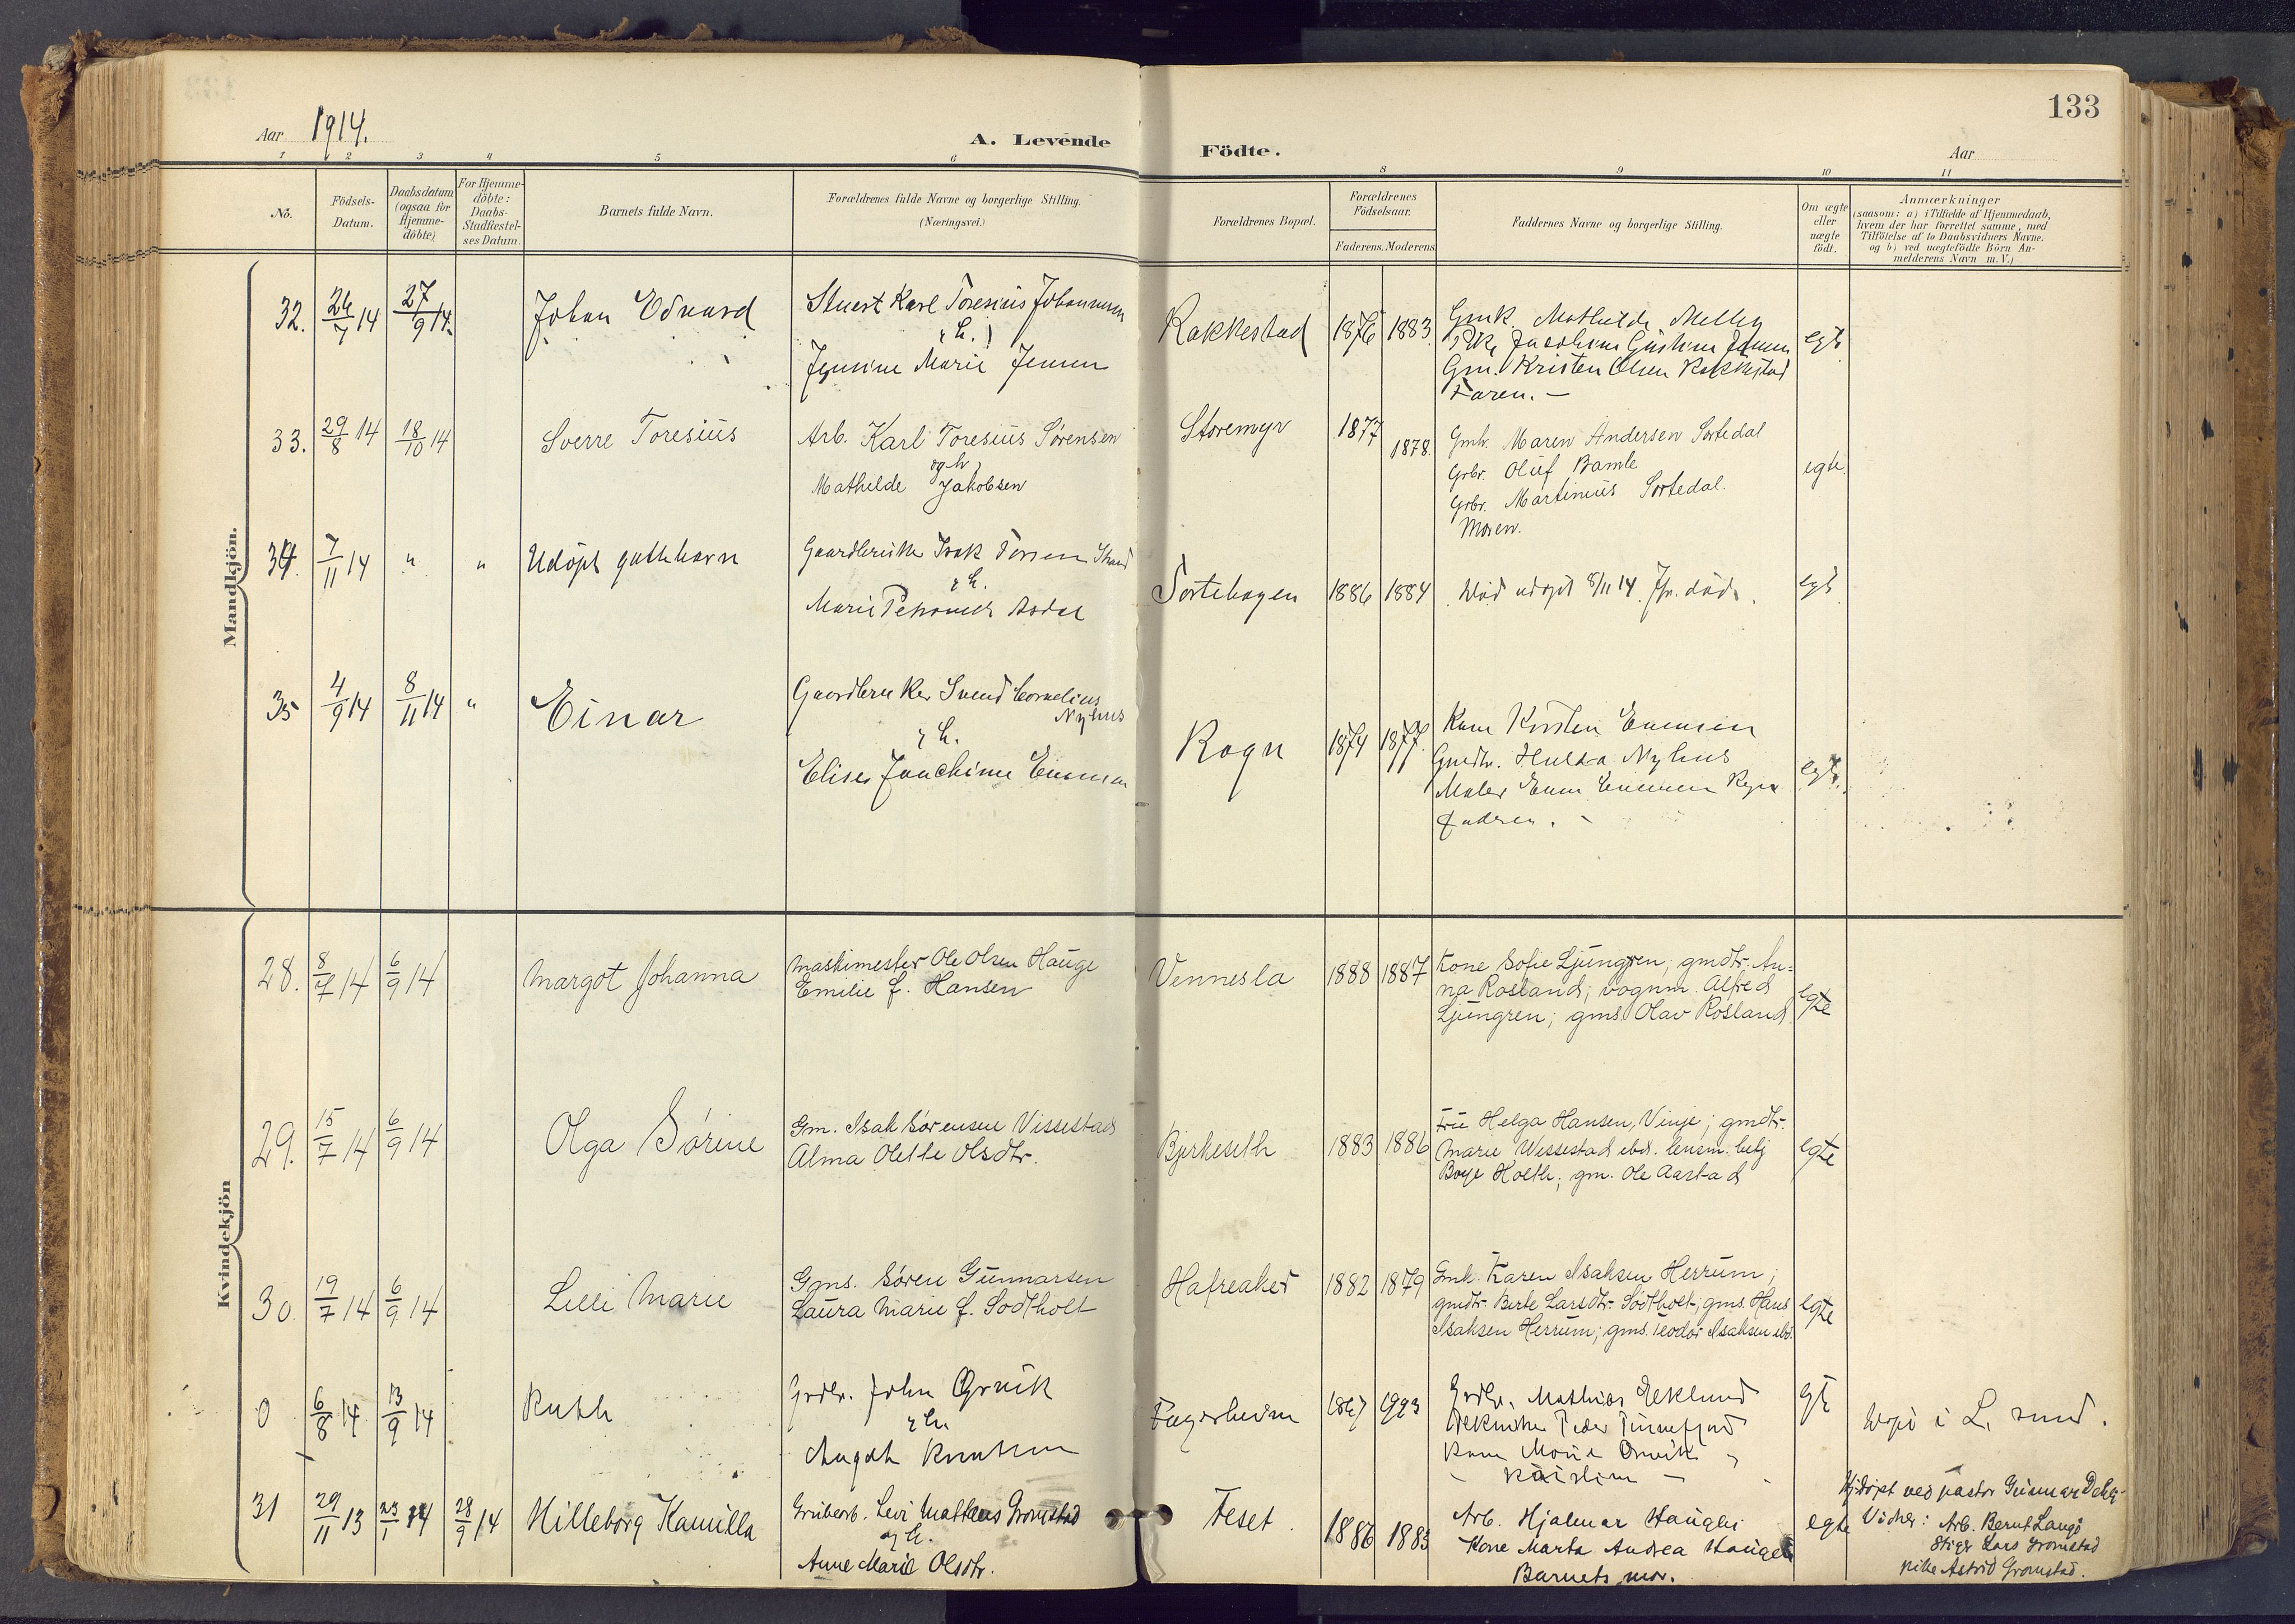 133
Aar 1914.
A. Levende Födte.
Aar
1 2 3 4 5 6 8 9 10 11
No.
Födsels-Datum.
Daabsdatum (ogsaa for Hjemme-döbte)
For Hjemme-döbte: Daabs-Stadfæstel-ses Datum.
Barnets fulde Navn.
Forældrenes fulde Navne og borgerlige Stilling.
(Næringsvei.)
Forældrenes Bopæl.
Forældrenes Födselsaar.
Faderens. Moderens
Faddernes Navne og borgerlige Stilling.
Om ægte eller uægte födt.
Anmærkninger
(saasom: a) i Tilfælde af Hjemmedaab,
hvem der har forrettet samme, med
Tilföielse af to Daabsvidners Navne.
og b) ved uægtefödte Börn An-
melderens Navn m. V.)
Mandkjön.
32. 26/7 14 27/9 14. Johan Edvard
Stuert Karl Toresius Johannesen
& h.
Jensine Marie Jensen
Rakkestad 1876 1883.
Gmk. Mathilde Melby
Pike Jacobine Gustava Jensen
Gm. Kristen Olsen Rakkestad
Faren. —
egte
33. 29/8 14 18/10 14 Sverre Toresius
Arb. Karl Toresius Sørensen
og h.
Mathilde Jakobsen
Storemyr 1877 1878.
Gmk. Maren Andersen Sortedal
Grbr. Oluf Bamle
Grbr. Martinius Sortedal.
Moren.
egte.
34. 7/11 14 " " Udöpt guttebarn
Gaardbruker Isak
& h.
Marie Asdal
Sortehagen 1886 1884
Död udöpt 8/11 14.
egte
35 4/9 14 8/11 14 " Einar
Gaardbruker Svend Cornelius
Nyhus
& h.
Elise Joachime
Rogn 1874 1877.
Kone Kirsten
Gmdtr. Hulda Nyhus
Maler Rogn
Faderen. -
egte.
Kvindekjön
28. 8/7 14 6/9 14 Margot Johanna
Maskimester Ole Olsen Hauge
Emilie f. Hansen
Vennesla 1888 1887
Kone Sofie Ljungren; gmdtr. An=
na Rosland; vognm. Alfred
Ljungren; gms. Olav Rosland
egte
29. 15/7 14 6/9 14 Olga Sørine
Gm. Isak Sørensen Vissestad
Alma Olette Olsdtr.
Bjerkeseth 1883 1886
Frue Helga Hansen, Vinje; gmdtr.
Marie Wissestad ibd. lensm. betj
Boye Holtle; gm. Ole Aastad
egte
30. 19/7 14 6/9 14 Lilli Marie
Gms. Søren Gunnarsen
Laura Marie f. Sodtholt
Hafreaker 1882 1879
Gmk. Karen Isaksen Herrum;
gmdtr. Berte Larsdtr. Sodtholt; gms. Hans
Isaksen Herrum; gms. Teodor Isaksen ibd.
egte
0 6/8 14 13/9 14 Ruth
Grdbr. John Ørvik
& h.
Aagoth Knutsen
Fagerheim 1867
Grdbr. Mathias Eklund
Peder
Kone Ørvik
egte
Döpt i L. sund.
31 29/11 13 25/1 14 28/9 14 Hilleborg Kamilla
Grubearb. Levi Matteus Gromstad
& h.
Anne Marie Olsdtr.
Feset. 1886 1885
Arb. Hjalmar Haugen
Kone Marta Andrea Haugen
Barnets mor.
egte
Hj.döpt ved pastor Gunnar Dehli.
Vidner: Arb. Bernt Langö
Stiger Lars Gromstad
Pike Astrid Gromstad.